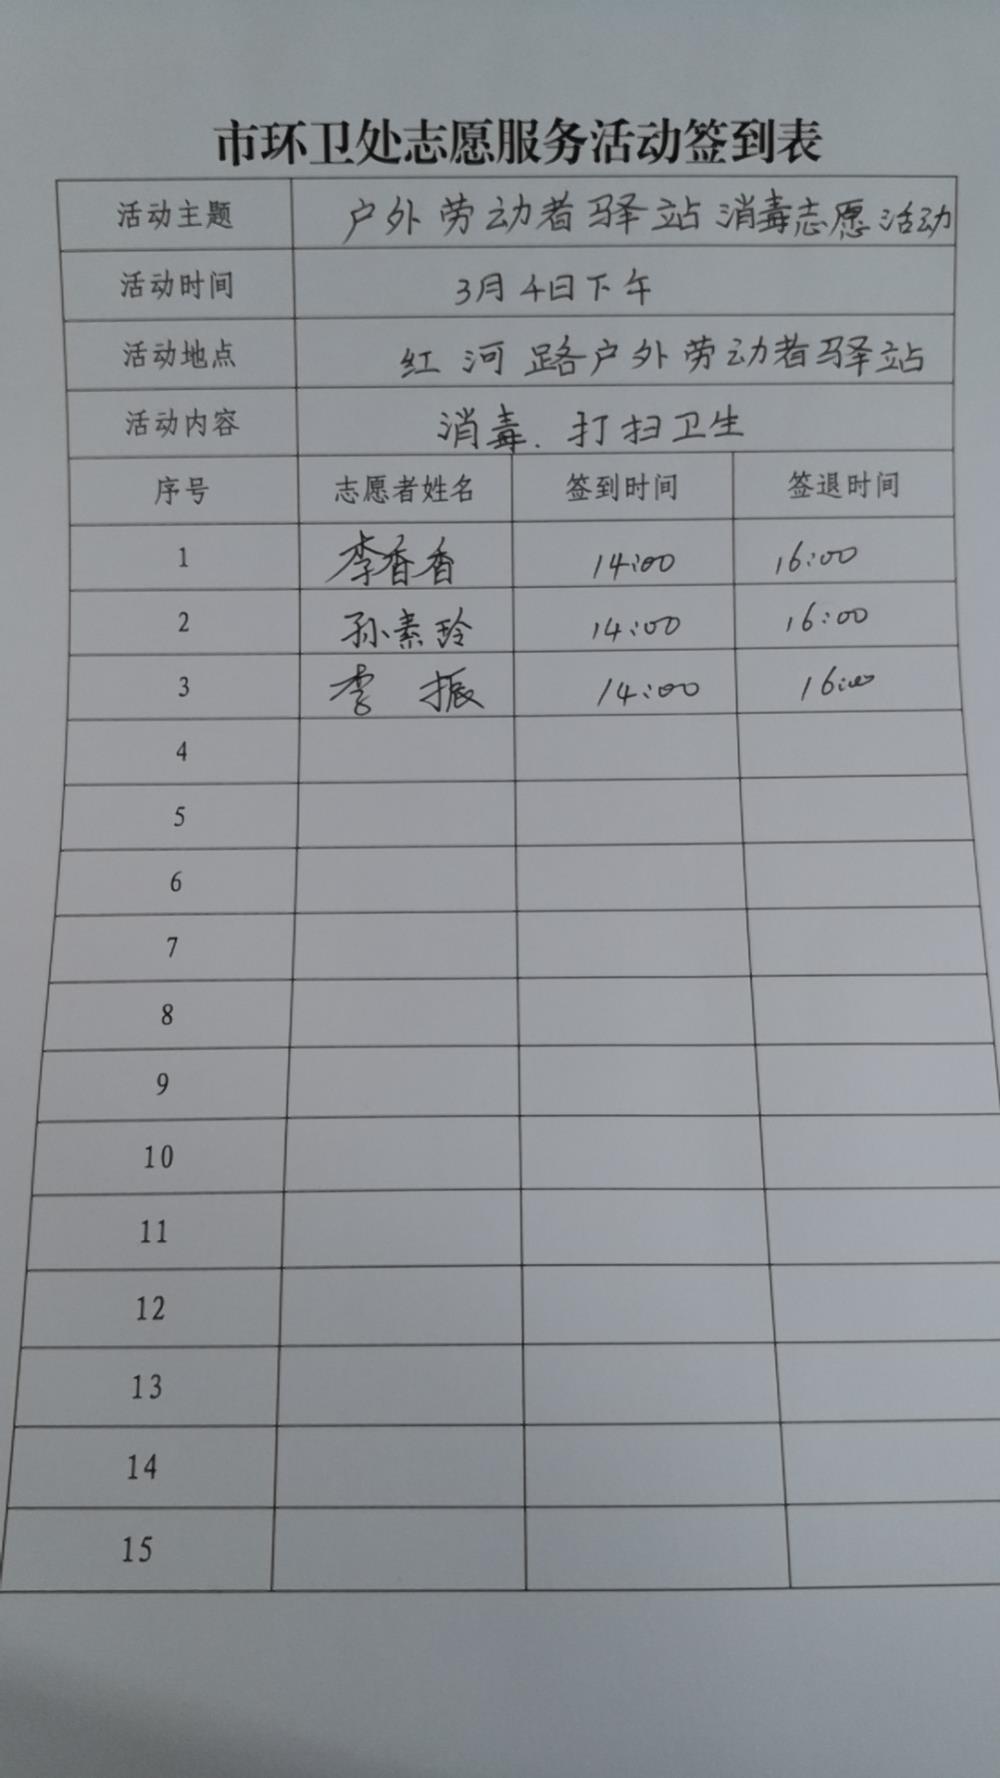 市环卫处志愿服务活动签到表
活动主题 户外劳动者驿站消毒志愿活动
活动时间 3月4日下午
活动地点 红河路户外劳动者驿站
活动内容 消毒、打扫卫生
序号 志愿者姓名 签到时间 签退时间
1 李香香 14:00 16:00
2 孙素玲 14:00 16:00
3 李振 14:00 16:00
4
5
6
7
8
9
10
11
12
13
14
15